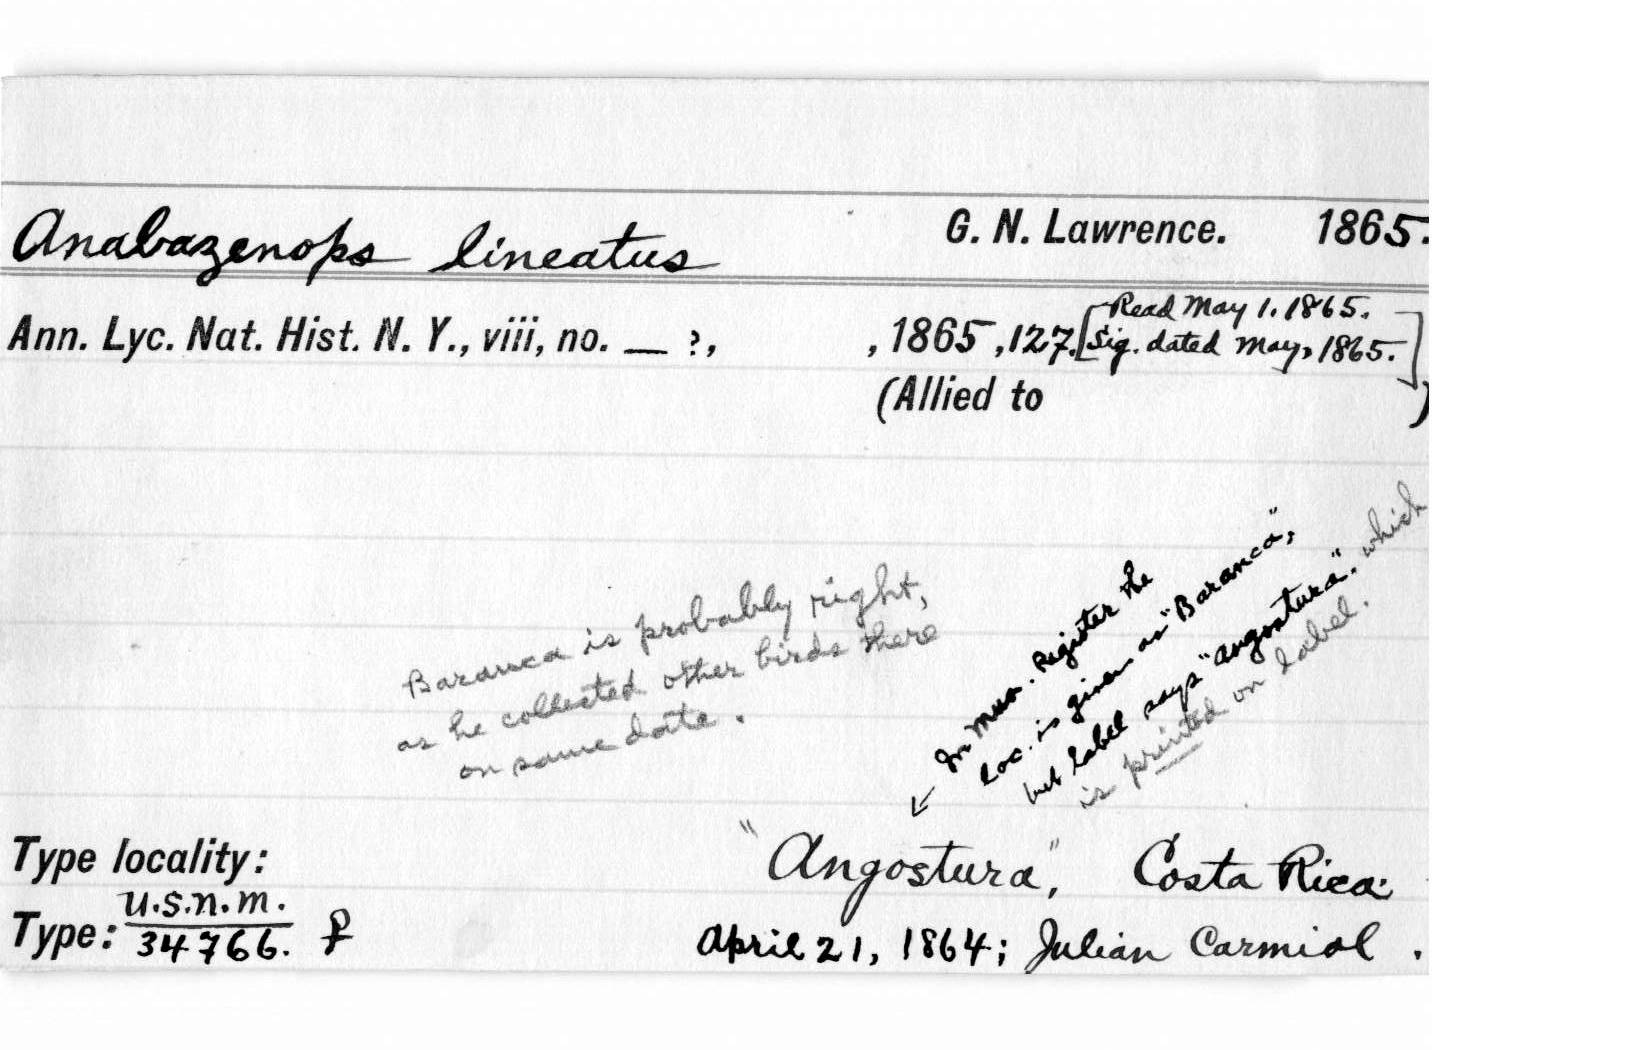 Anabazenops lineatus G. N. Lawrence. 1865.
Ann. Lyc. Nat. Hist. N. Y., viii, no. — ?, , 1865, 127. [Read May 1. 1865.
Sig. dated May, 1865.]
(Allied to )
Baranca is probably right,
as he collected other birds there
on same date.
In Mus. Register the
Loc. is given as "Baranca",
but label says "Angostura". which
is printed on label.
Type locality: "Angostura", Costa Rica.
Type: U.S.N.M.
34766. ♀ April 21, 1864; Julian Carmiol.